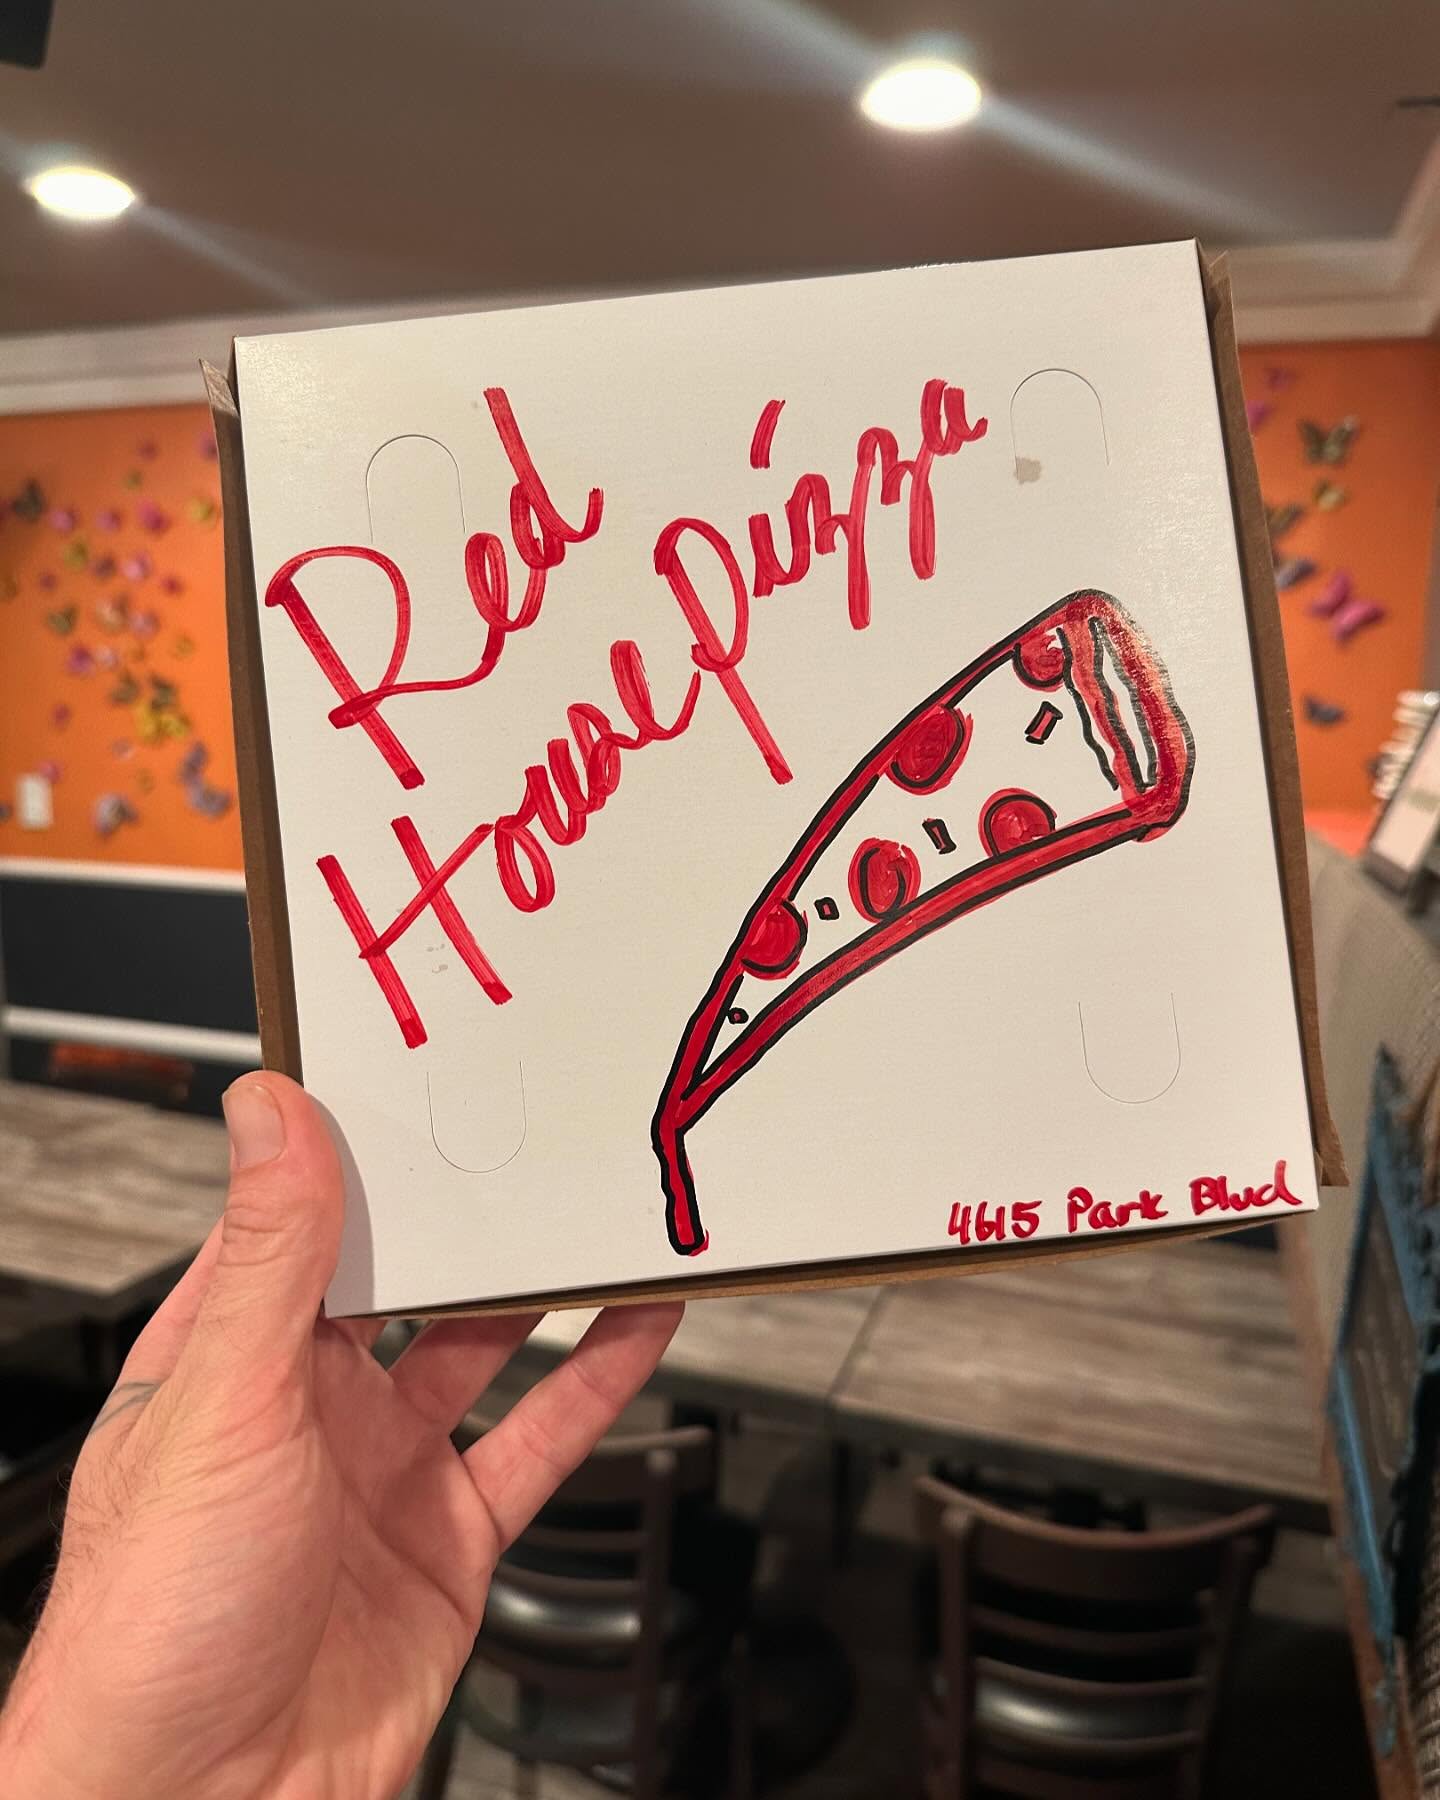 Red
House pizza
4615 Park Blvd